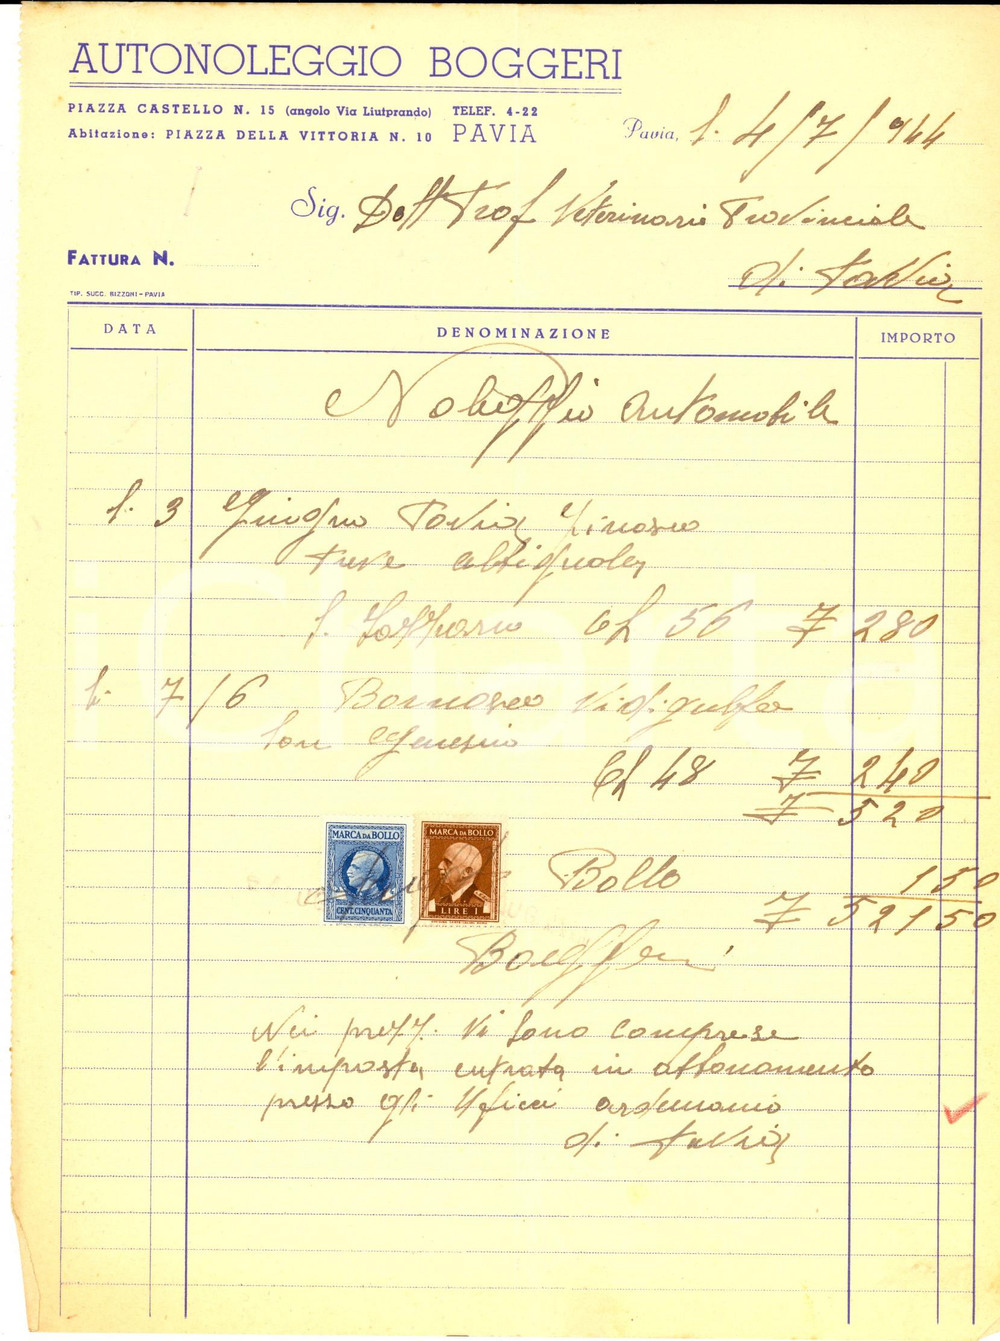 AUTONOLEGGIO BOGGERI
PIAZZA CASTELLO N. 15 (angolo Via Liutprando) TELEF. 4-22
Abitazione: PIAZZA DELLA VITTORIA N. 10 PAVIA
Pavia, lì 4/7/944
Sig. Dott Prof Veterinario Provinciale
di Pavia
FATTURA N.
TIP. SUCC. BIZZONI - PAVIA
DATA DENOMINAZIONE IMPORTO
Noleggio Automobile
lì 3 Giugno Pavia Zinasco
Pieve Albignola
Ch 56 £ 280
lì 7/6 Bornasco Vidigulfo
San Genesio
Ch 48 £ 240
£ 520
MARCA DA BOLLO
CENT. CINQUANTA
MARCA DA BOLLO
LIRE 1
Bollo 1 50
£ 521 50
Boggeri
Nei prezzi vi sono comprese
l'imposta entrata in abbonamento
presso gli Uffici
di Pavia